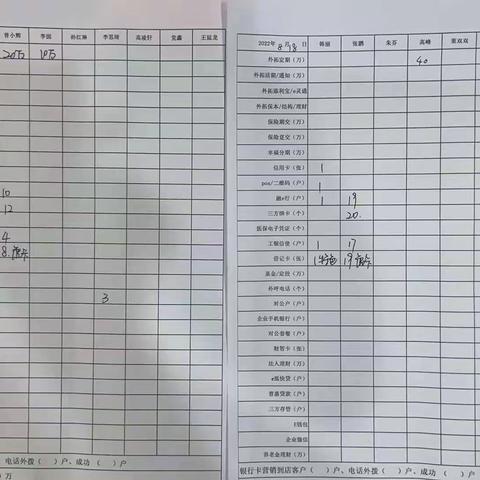 曾小辉 李圆 孙红琳 李思琦 高凌轩 党鑫 王延龙
20万 10万
10
12
4
8
3
、电话外拨（ ）户、成功（ ）户
）万
2022年8月18日 韩丽 张鹏 朱芬 高峰 董双双
外拓定期（万） 40
外拓活期/通知（万）
外拓添利宝/e灵通
外拓保本/结构/理财
保险期交（万）
保险趸交（万）
幸福分期（万）
信用卡（张） 1
pos/二维码（户） 1
融e行（户） 1 19
三方绑卡（个） 20.
医保电子凭证（户）
工银信使（户） 1 17
借记卡（张） 1 19
基金/定投（万）
外呼电话（个）
对公户（个）
企业手机银行（户）
对公套餐（户）
财智卡（张）
法人理财（万）
e抵快贷（户）
普惠贷款（户）
三方存管（户）
E钱包
企业微信
养老金理财（万）
银行卡营销到店客户（ ）户、电话外拨（ ）户、成功（